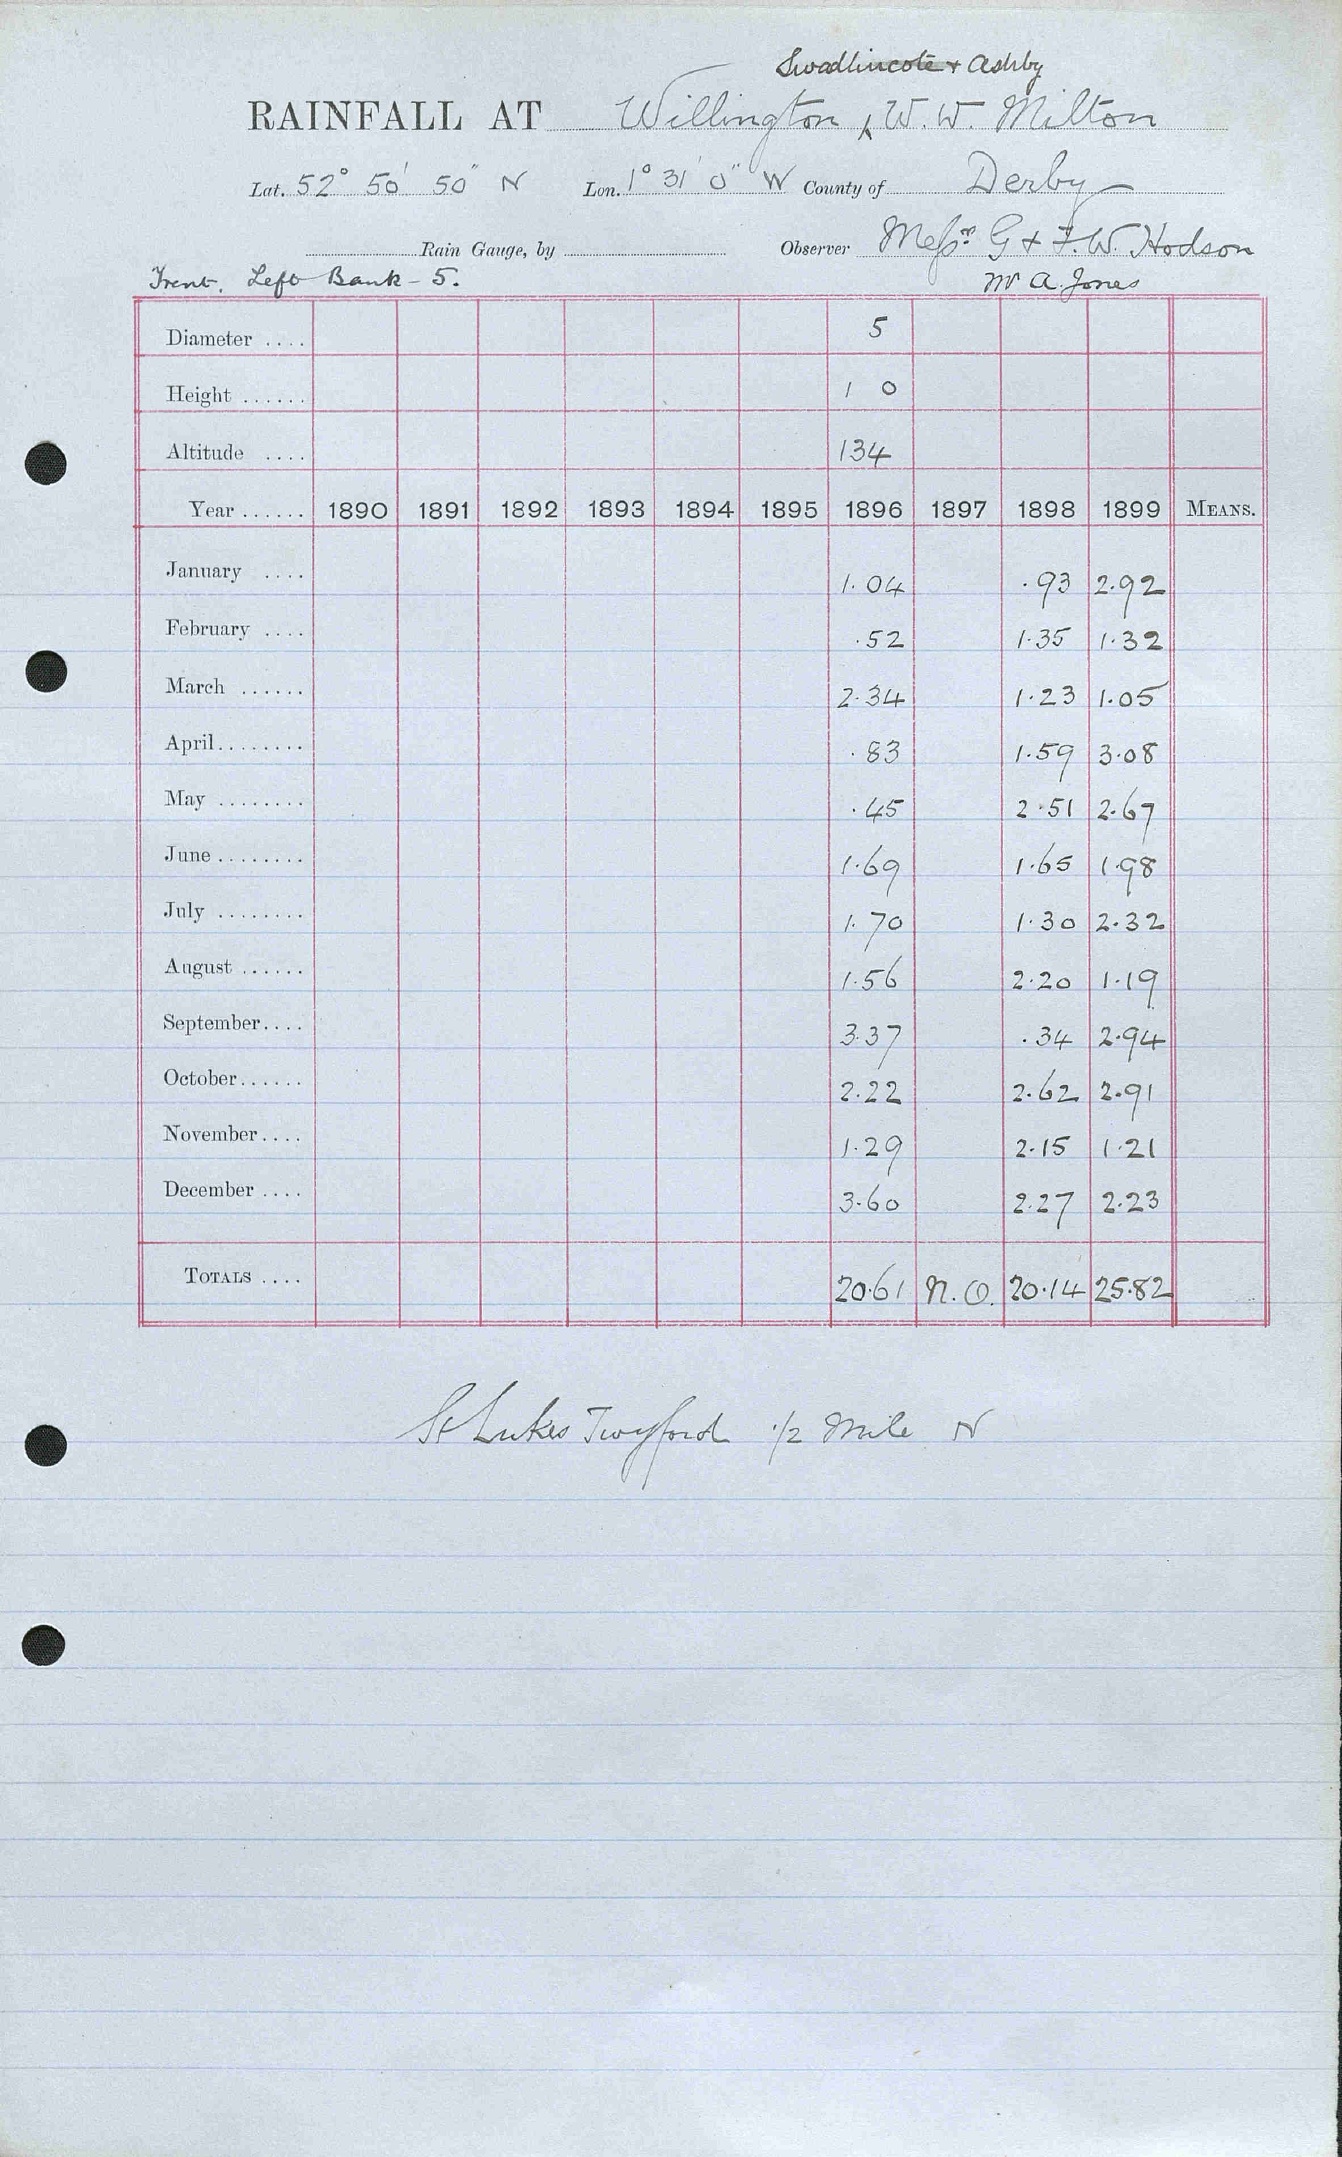 Swadlincote & Ashby
RAINFALL AT Willington ^ W. W. Milton
Lat. 52° 50' 50" N Lon. 1° 31' 0" W County of Derby
Rain Gauge, by Observer Messrs G & F. W. Hodson
Trent, Left Bank - 5. Mr A. Jones
Diameter .... 5
Height ...... 1 0
Altitude .... 134
Year ...... 1890 1891 1892 1893 1894 1895 1896 1897 1898 1899 MEANS.
January .... 1.04 .93 2.92
February .... .52 1.35 1.32
March ...... 2.34 1.23 1.05
April ........ .83 1.59 3.08
May ........ .45 2.51 2.67
June ........ 1.69 1.65 1.98
July ........ 1.70 1.30 2.32
August ...... 1.56 2.20 1.19
September .... 3.37 .34 2.94
October ...... 2.22 2.62 2.91
November .... 1.29 2.15 1.21
December .... 3.60 2.27 2.23
TOTALS .... 20.61 N.O. 20.14 25.82
St Lukes Twyford 1/2 Mile N